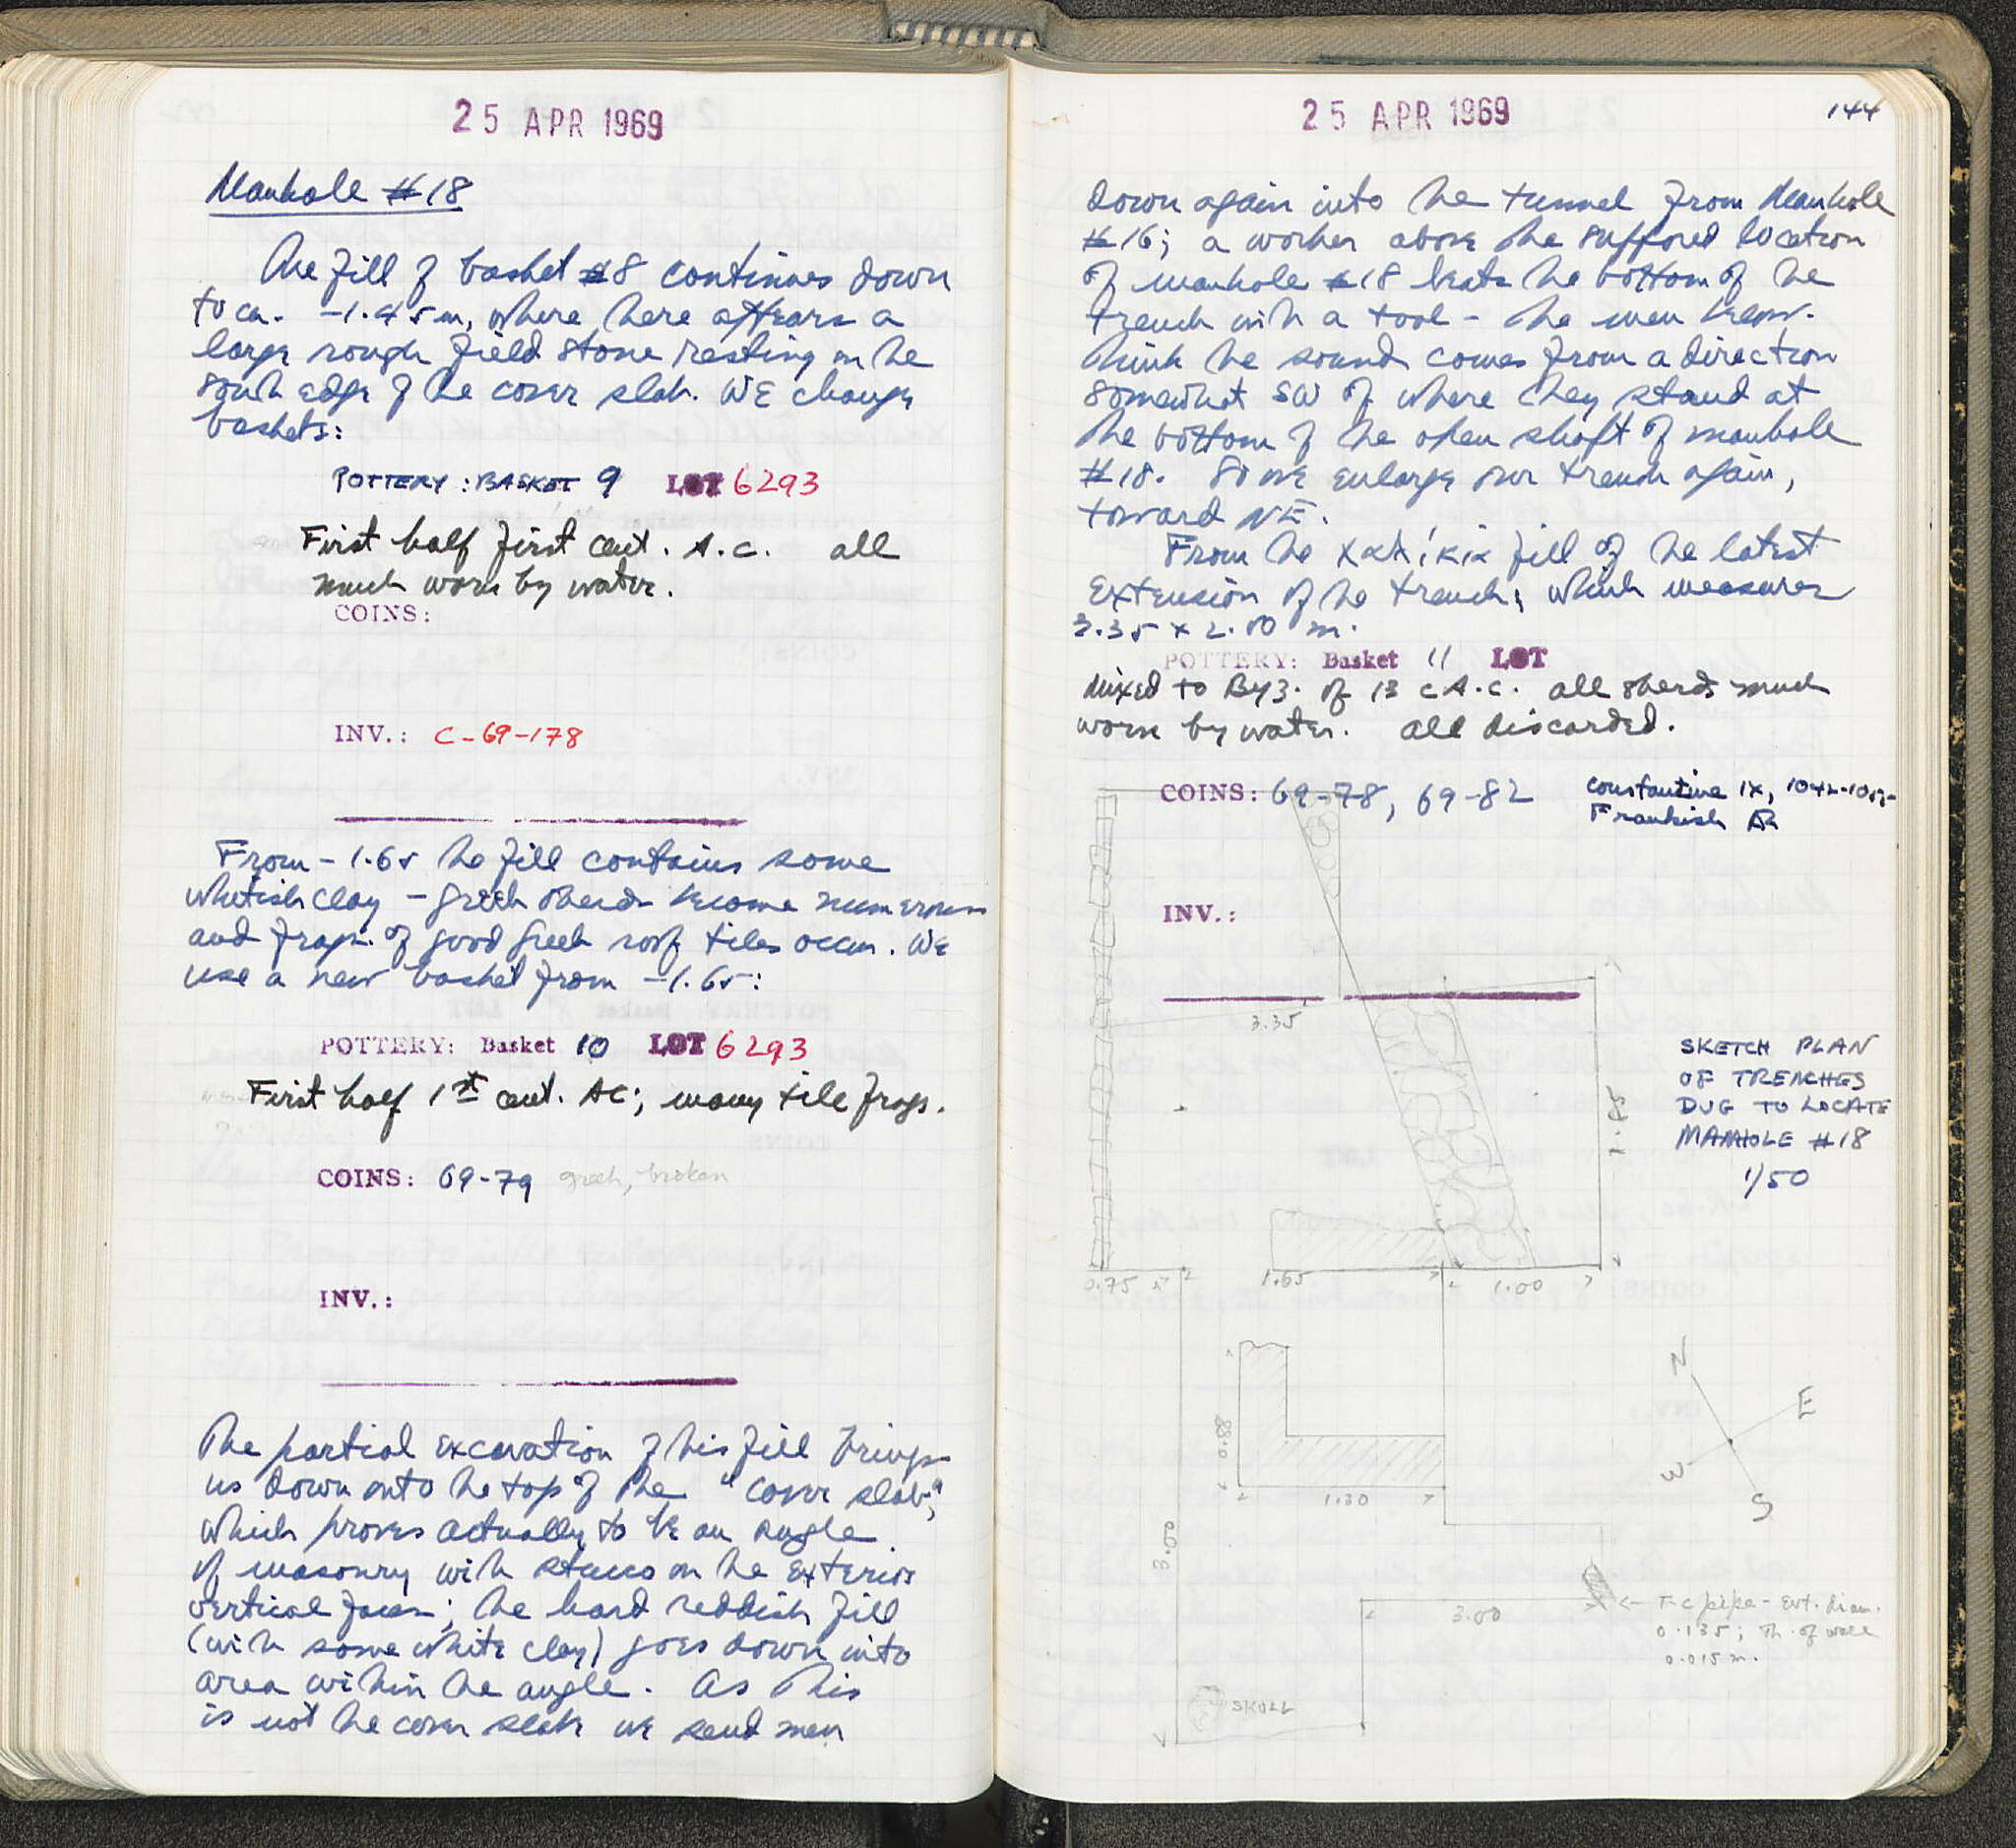 25 APR 1969
Manhole #18
The fill of basket #8 continues down
to ca. -1.45 m, where there appears a
large rough field stone resting on the
south edge of the cover slab. We change
baskets:
POTTERY: BASKET 9 LOT 6293
First half first cent. A.C. all
much worn by water.
COINS:
INV.: C-69-178
From -1.65 the fill contains some
whitish clay - greek sherds become numerous
and frags. of good Greek roof tiles occur. We
use a new basket from -1.65:
POTTERY: Basket 10 LOT 6293
First half 1st cent. AC; many tile frags.
COINS: 69-79 greek, broken
INV.:
The partial excavation of this fill brings
us down onto the top of the "cover slab",
which proves actually to be an angle
of masonry with stucco on the exterior
vertical faces; the hard reddish fill
(with some white clay) goes down into
area within the angle. As this
is not the cover slab we send men
25 APR 1969
144
down again into the tunnel from Manhole
#16; a worker above the supposed location
of manhole #18 beats the bottom of the
trench with a tool - the men below
think the sound comes from a direction
somewhat SW of where they stand at
the bottom of the open shaft of manhole
#18. So we enlarge our trench again,
toward NE.
From the χαλίκια fill of the latest
extension of the trench, which measures
3.35 x 2.00 m.
POTTERY: Basket 11 LOT
Mixed to Byz. of 13 c A.C. all sherds much
worn by water. all discarded.
COINS: 69-78, 69-82 Constantine IX, 1042-1055
Frankish AR
INV.:
3.35
SKETCH PLAN
OF TRENCHES
DUG TO LOCATE
MANHOLE #18
1/50
0.75
1.65
1.00
N
E
W
S
0.88
1.30
3.00
3.00
T-c pipe - Ext. diam.
0.135; Th. of wall
0.015 m.
SKULL